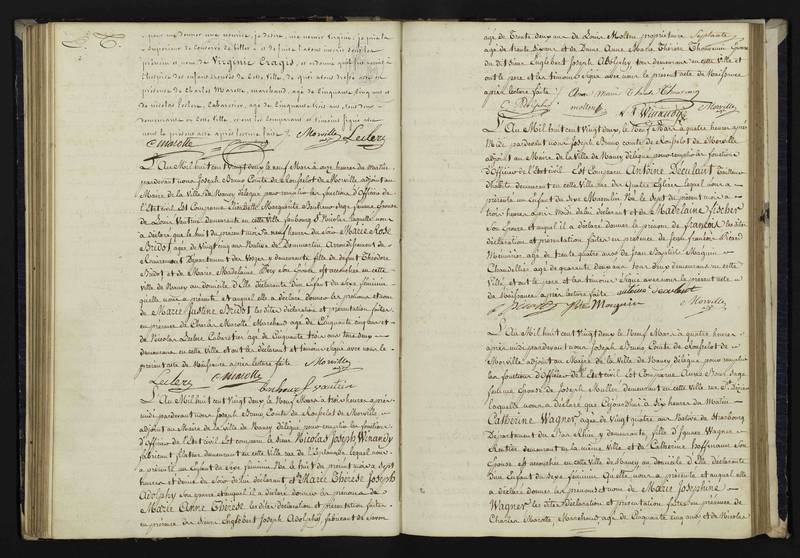 pour me donner une nourrice, je désire me nommer Virginie, je prie la
prénom et nom de Virginie Craqis, et ordonné qu'il fût remis à
l'hospice des enfants trouvés de cette ville, de quoi avons dressé acte en
présence de Charles Marotte, marchand, agé de Cinquante Cinq ans et
de nicolas Leclerc, Cabaretier, agé de Cinquante trois ans, tous deux
demeurants en cette Ville, et ont les comparans et témoins signé avec
nous le présent acte après lecture faite
C Marotte Morville Leclerc
L'An Mil huit cent Vingt deux le neuf Mars à onze heures du Matin,
pardevant nous Joseph Bruno Comte de Morville adjoint au
Maire de la Ville de Nancy délégué pour remplir les fonctions d'Officier de
l'Etat civil Est Comparue Elisabeth Marguerite sage femme Epouse
de Louis Vautrin demeurante en cette ville faubourg St Nicolas laquelle nous
a déclaré que le huit du présent mois à neuf heures du soir Marie Rose
Bridot agée de Vingt cinq ans Native de Dommartin Arrondissement de
Remiremont Département des Vosges y demeurante fille de defunt Théodore
Bridot et de Marie Madelaine son Epouse est accouchée en cette
Ville de Nancy au domicile d'Elle déclarante D'un Enfant du sexe féminin
quelle nous a présenté et auquel elle a déclaré donner les prénoms et nom
de Marie Justine Bridot les dites déclaration et présentation faites
en présence de Charles Marotte Marchand agé de Cinquante cinq ans et
de Nicolas Leclerc Cabaretier agé de Cinquante trois ans tous deux
demeurans en cette Ville et ont les déclarant et témoins Signé avec nous le
présent acte de Naissance après lecture faite Morville
Leclerc C Marotte
vautrin
L'An Mil huit cent Vingt deux le neuf Mars à trois heures après
midi pardevant nous Joseph Bruno Comte de Morville
adjoint au Maire de la Ville de Nancy délégué pour remplir les fonctions
d'Officier de l'Etat civil Est comparu le Sieur Nicolas Joseph Winandy
fabricant demeurant en cette Ville rue de l'Esplanade lequel nous
a présenté un Enfant du sexe féminin Né le huit du présent mois à sept
heures et demie du soir de lui déclarant et de Marie Thérèse Joseph
Adolphy son Epouse et auquel il a déclaré donner les prénoms de
Marie Anne Thérèse les dites déclaration et présentation faites
en présence du Sieur Englebert Joseph Adolphy fabricant de Savon
agé de Trente deux ans de Louis Molteu propriétaire
agé de trente six ans et de Dame Anne Marie Thérèse Epouse
du dit Sieur Englebert Joseph Adolphy tous demeurans en cette Ville et
ont le père et les témoins Signé avec nous le présent acte de Naissance
après lecture faite Anne Marie
E Adolphy N J Winandy Morville
L'An Mil huit cent Vingt deux le Neuf Mars à quatre heures après
Midi pardevant nous Joseph Bruno comte de Morville
adjoint au Maire de la Ville de Nancy délégué pour remplir les fonctions
d'Officier de l'Etat civil Est Comparu Antoine Seculaist
demeurant en cette Ville rue des Quatre Eglises lequel nous a
présenté un Enfant du sexe Masculin Né le sept du présent mois à
trois heures après Midi de lui déclarant et de Madelaine fischer
Son Epouse et auquel il a déclaré donner le prénom de françois les dites
déclaration et présentation faites en présence de Jean françois Pierre
Menuisier agé de trente quatre ans et de Jean Baptiste Morquin
Chandellier agé de quarante deux ans tous deux demeurans en cette
Ville et ont le père et les témoins Signé avec nous le présent acte
de Naissance après lecture faite antoine Seculaist
Morquin Morville
L'An Mil huit cent Vingt deux le Neuf Mars à quatre heures
après midi pardevant nous Joseph Bruno Comte de
Morville adjoint au Maire de la Ville de Nancy délégué pour remplir
les fonctions d'Officier de l'Etat civil Est Comparue Anne Sage
femme Epouse de Joseph Muller demeurante en cette Ville rue St Dizier
laquelle nous a déclaré que Cejourd'hui à Six heures du Matin
Catherine Wagner agée de Vingt quatre ans Native de Strasbourg
Département du Bas Rhin y demeurante fille d'Ignace Wagner
Rentier demeurant en la même Ville et de Catherine hoffmann Son
Epouse est accouchée en cette Ville de Nancy au domicile d'Elle déclarante
D'un Enfant du sexe féminin Qu'elle nous a présenté et auquel elle
a déclaré donner les prénoms et nom de Marie Josephine
Wagner les dites Déclaration et présentation faites en présence de
Charles Marotte, Marchand agé de Cinquante Cinq ans et de Nicolas